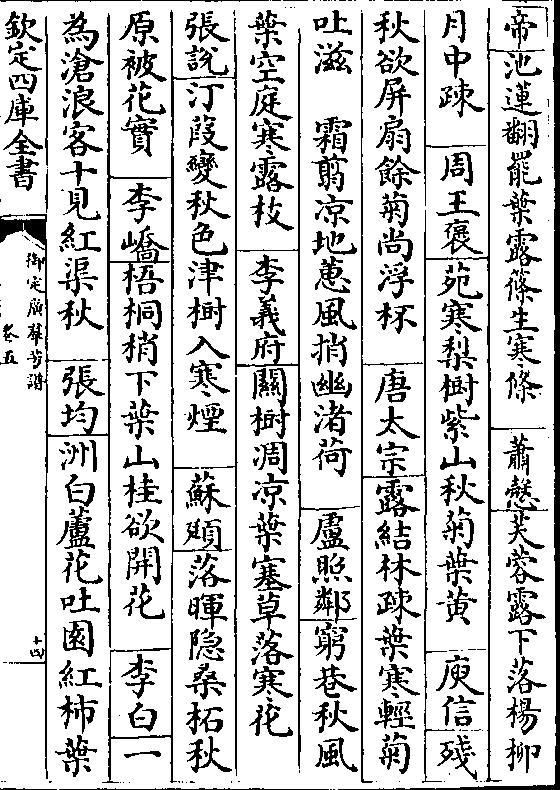 帝池蓮翻罷葉露篠生寒條　蕭慤芙蓉露下落楊柳
月中疎　周王褒苑寒梨樹紫山秋菊葉黄　庾信殘
秋欲屏扇餘菊尚浮杯　唐太宗露結林疎葉寒輕菊
吐滋　霜翦凉地蕙風捎幽渚荷　盧照鄰窮巷秋風
葉空庭寒露枝　李義府關樹凋凉葉塞草落寒花
張說汀葭變秋色津樹入寒煙　蘇頲落暉隐桑柘秋
原被花實　李嶠梧桐梢下葉山桂欲開花　李白一
為滄浪客十見紅渠秋　張均洲白蘆花吐園紅柿葉
欽定四庫全書
御定廣羣芳譜
卷五
十四